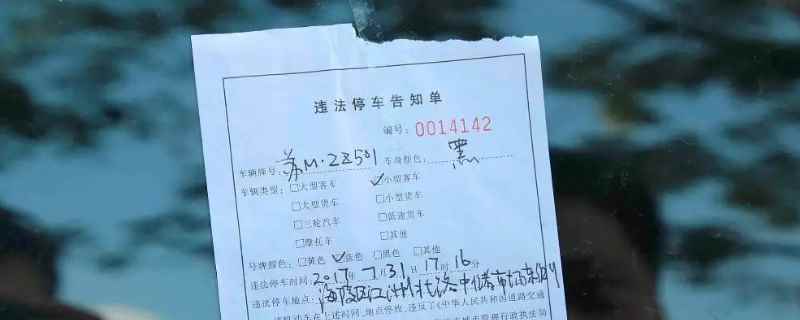 违法停车告知单
编号：0014142
车辆牌号：苏M·2Z501 车身颜色：黑
车辆类型：□大型客车 ☑小型客车
□大型货车 □小型货车
□三轮汽车 □低速货车
□摩托车 □其他
号牌颜色：□黄色 ☑蓝色 □黑色 □其他
违法停车时间：2017年7月31日17时16分
违法停车地点：海陵区江洲北路中储市场东侧
该机动车在上述时间、地点停放，违反了《中华人民共和国道路交通
城市管理行政执法局